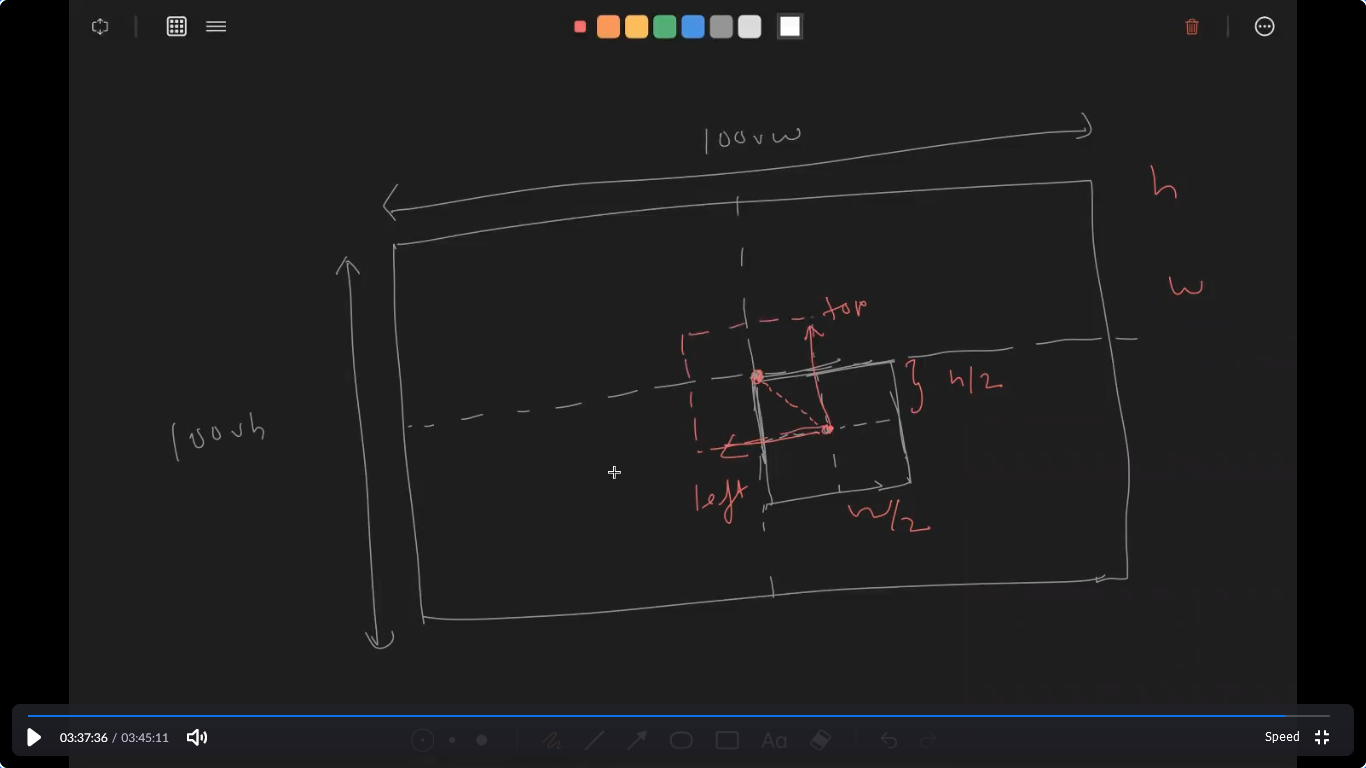 Aa
100vw
h
w
top
h/2
100vh
left
w/2
03:37:36 / 03:45:11
Speed